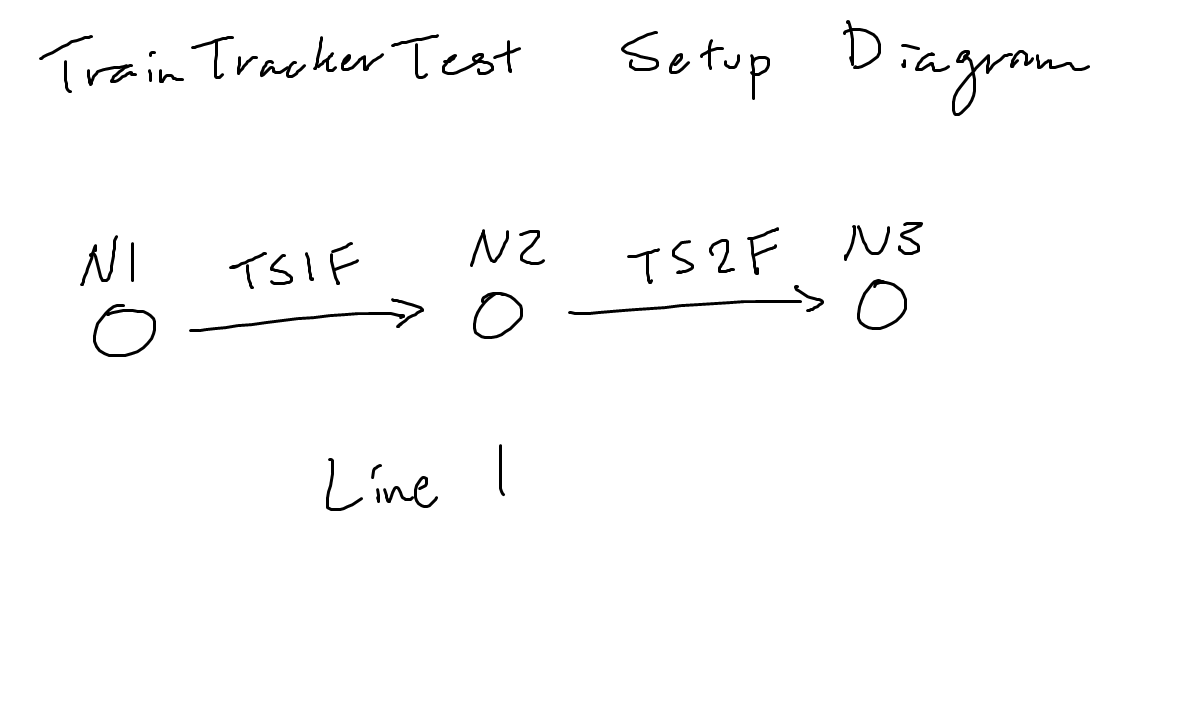 TrainTrackerTest Setup Diagram
N1 TS1F N2 TS2F N3
Line 1